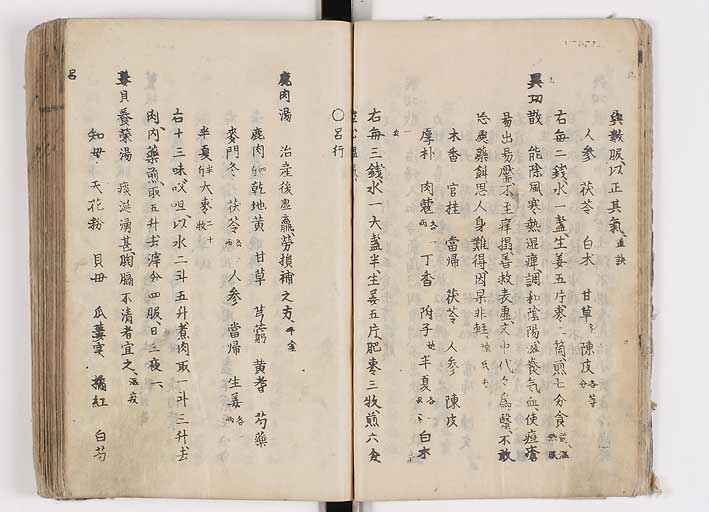 與數服以正其氣 直訣
人參 茯苓 白朮 甘草 陳皮 各等分
右每二錢水一盞生姜五片棗二箇煎七分食前温服
異功散 能除風寒熱湿痺調和陰陽滋養氣血使痘瘡
易出易靨不主痒塌善救表虚文中代々為醫不敢
木香 官桂 當帰 茯苓 人參 陳皮
厚朴 肉蔲 丁香 附子 半夏 白朮
右每三錢水一大盞半生姜五片肥棗三牧煎六分
〇呂行
鹿肉湯 治産後虚羸勞損補之方 千金
鹿肉 乾地黄 甘草 芎藭 黄耆 芍藥
麥門冬 茯苓 各二兩 人參 當帰 生姜 各一兩
半夏 半升 大棗 二十牧
右十三味㕮咀以水二斗五升煮肉取一斗三升去
肉内藥煎取五升去滓分四服日三夜一
呂
貝母養榮湯 痰涎湧甚胸膈不清者宜之 温疫
知母 天花粉 貝母 瓜蔞実 橘紅 白芍